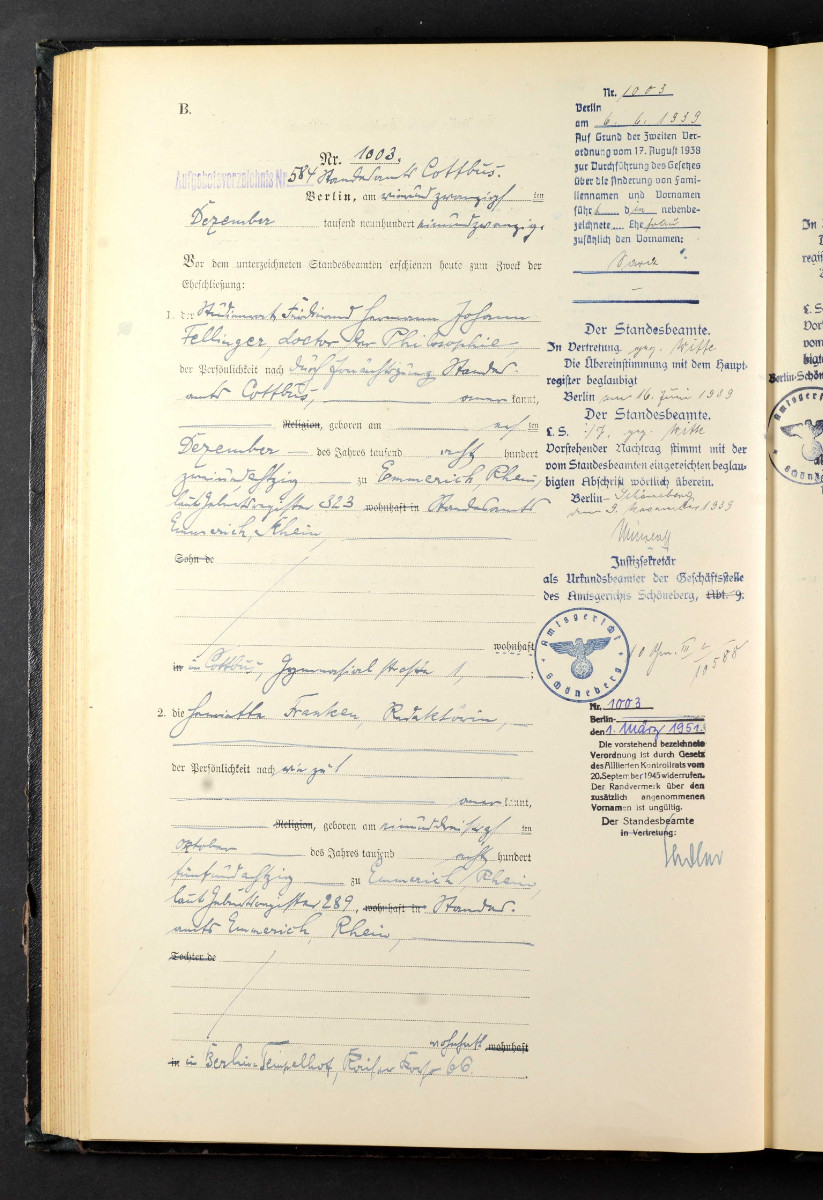 B.
Nr. 1003.
Aufgebotsverzeichnis Nr 584 Standesamts Cottbus.
Berlin, am einundzwanzigsten
Dezember tausend neunhundert einundzwanzig.
Vor dem unterzeichneten Standesbeamten erschienen heute zum Zweck der
Eheschließung:
1. der Studienrat Ferdinand Hermann Johann
Fellinger, doctor der Philosophie,
der Persönlichkeit nach durch Ermächtigung Standes-
amts Cottbus, kannt,
Religion, geboren am ten
Dezember des Jahres tausend acht hundert
zweiundachtzig zu Emmerich, Rhein,
laut Geburtsregister 323 wohnhaft in Standesamts
Emmerich, Rhein
Sohn de
wohnhaft
in in Cottbus, Gymnasialstraße 1, ;
2. die Henriette Franken, Redaktörin,
der Persönlichkeit nach wie zu 1
kannt,
Religion, geboren am einunddreißigsten
Oktober des Jahres tausend acht hundert
fünfundachtzig zu Emmerich, Rhein,
laut Geburtsregister 289, wohnhaft in Standes-
amts Emmerich, Rhein,
Tochter de
wohnhaft wohnhaft
in in Berlin-Tempelhof, Kaiser Korso 66.
Nr. 1003
Berlin
am 6. 6. 1939
Auf Grund der Zweiten Ver-
ordnung vom 17. August 1938
zur Durchführung des Gesetzes
über die Änderung von Fami-
liennamen und Vornamen
führt die nebenbe-
zeichnete Ehefrau
zusätzlich den Vornamen:
Sara
Der Standesbeamte.
In Vertretung gez. Witte
Die Übereinstimmung mit dem Haupt-
register beglaubigt
Berlin am 16. Juni 1939
Der Standesbeamte.
L. S. i/V. gez. Witte
Vorstehender Nachtrag stimmt mit der
vom Standesbeamten eingereichten beglau-
bigten Abschrift wörtlich überein.
Berlin-Schöneberg
den 9. November 1939
Justizsekretär
als Urkundsbeamter der Geschäftsstelle
des Amtsgerichts Schöneberg, Abt. 9.
Amtsgericht
Schöneberg
Nr. 1003
Berlin-
den 1. März 1951.
Die vorstehend bezeichnete
Verordnung ist durch Gesetz
des Alliierten Kontrollrats vom
20. September 1945 widerrufen.
Der Randvermerk über den
zusätzlich angenommenen
Vornamen ist ungültig.
Der Standesbeamte
in Vertretung: